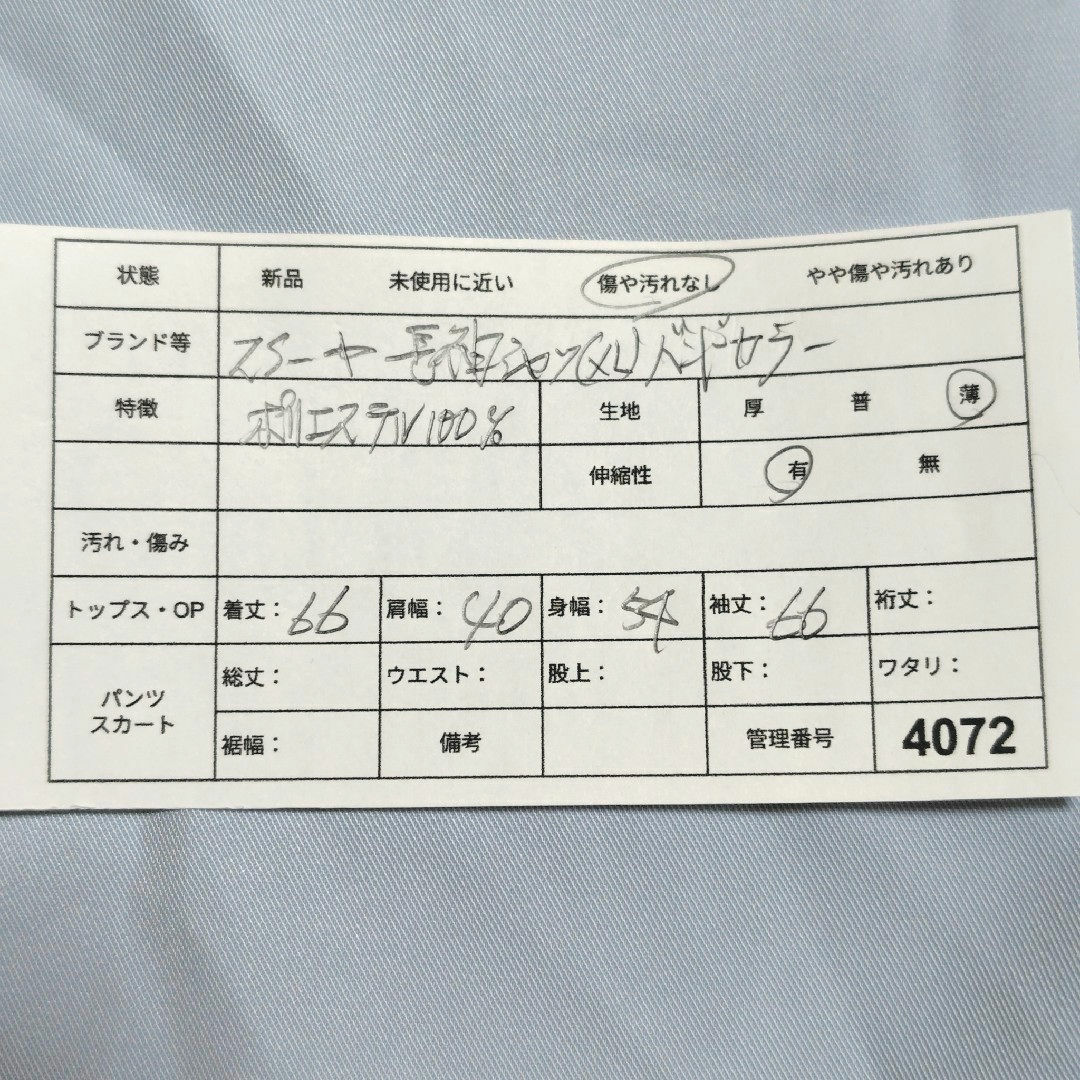 状態 新品 未使用に近い 傷や汚れなし やや傷や汚れあり
ブランド等 スーツ 長袖シャツ(XL) バンドカラー
特徴 ポリエステル100% 生地 厚 普 薄
伸縮性 有 無
汚れ・傷み
トップス・OP 着丈：66 肩幅：40 身幅：54 袖丈：66 裄丈：
パンツ スカート 総丈： ウエスト： 股上： 股下： ワタリ：
裾幅： 備考 管理番号 4072